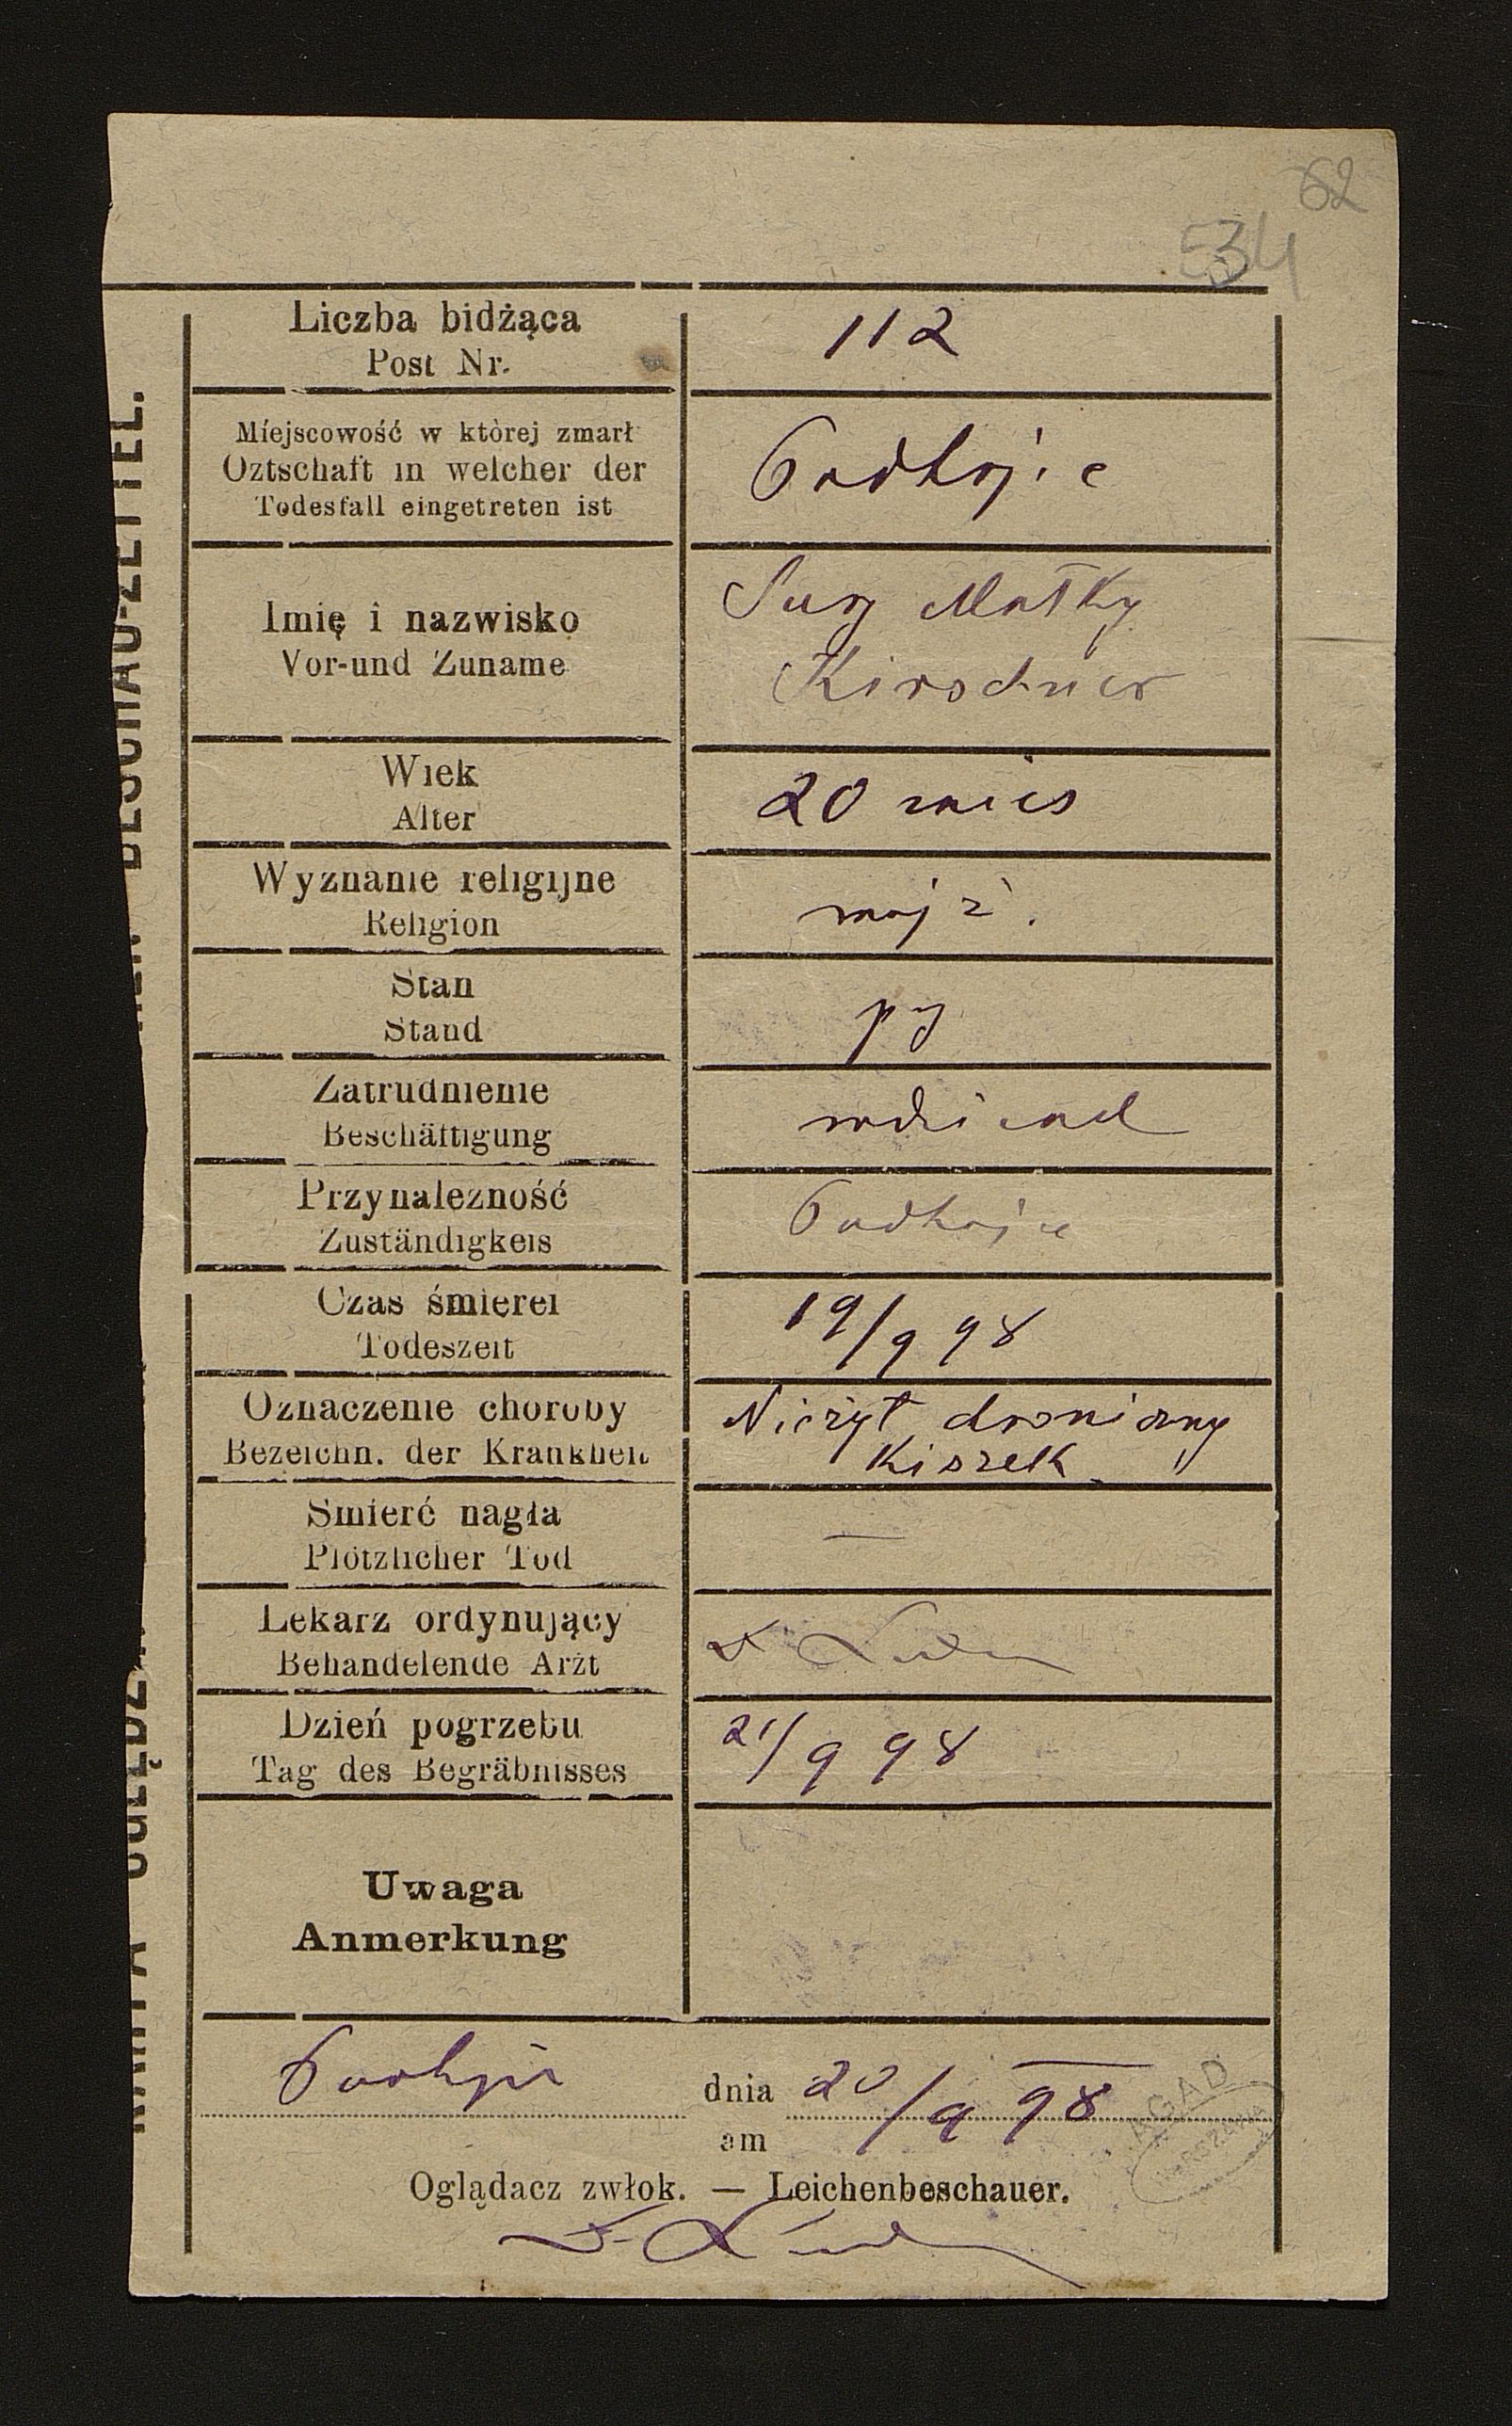 62
534
Liczba bidżąca
Post Nr.
112
Miejscowość w której zmarł
Oztschaft in welcher der
Todesfall eingetreten ist
Podhajce
Imię i nazwisko
Vor-und Zuname
Sury Małky
Kirschner
Wiek
Alter
20 mies
Wyznanie religijne
Religion
mojż.
Stan
Stand
Zatrudnienie
Beschäftigung
Przynależność
Zuständigkeis
Podhajce
Czas śmierei
Todeszeit
19/9 98
Oznaczenie choroby
Bezeichn. der Krankheit
Nieżyt chroniczny
Kiszek
Śmierć nagła
Plötzlicher Tod
—
Lekarz ordynujący
Behandelende Arzt
Dzień pogrzebu
Tag des Begräbnisses
21/9 98
Uwaga
Anmerkung
Podhajce dnia 20/9 98
am
Oglądacz zwłok. — Leichenbeschauer.
AGAD
WARSZAWA
BESCHAU-ZETTEL.